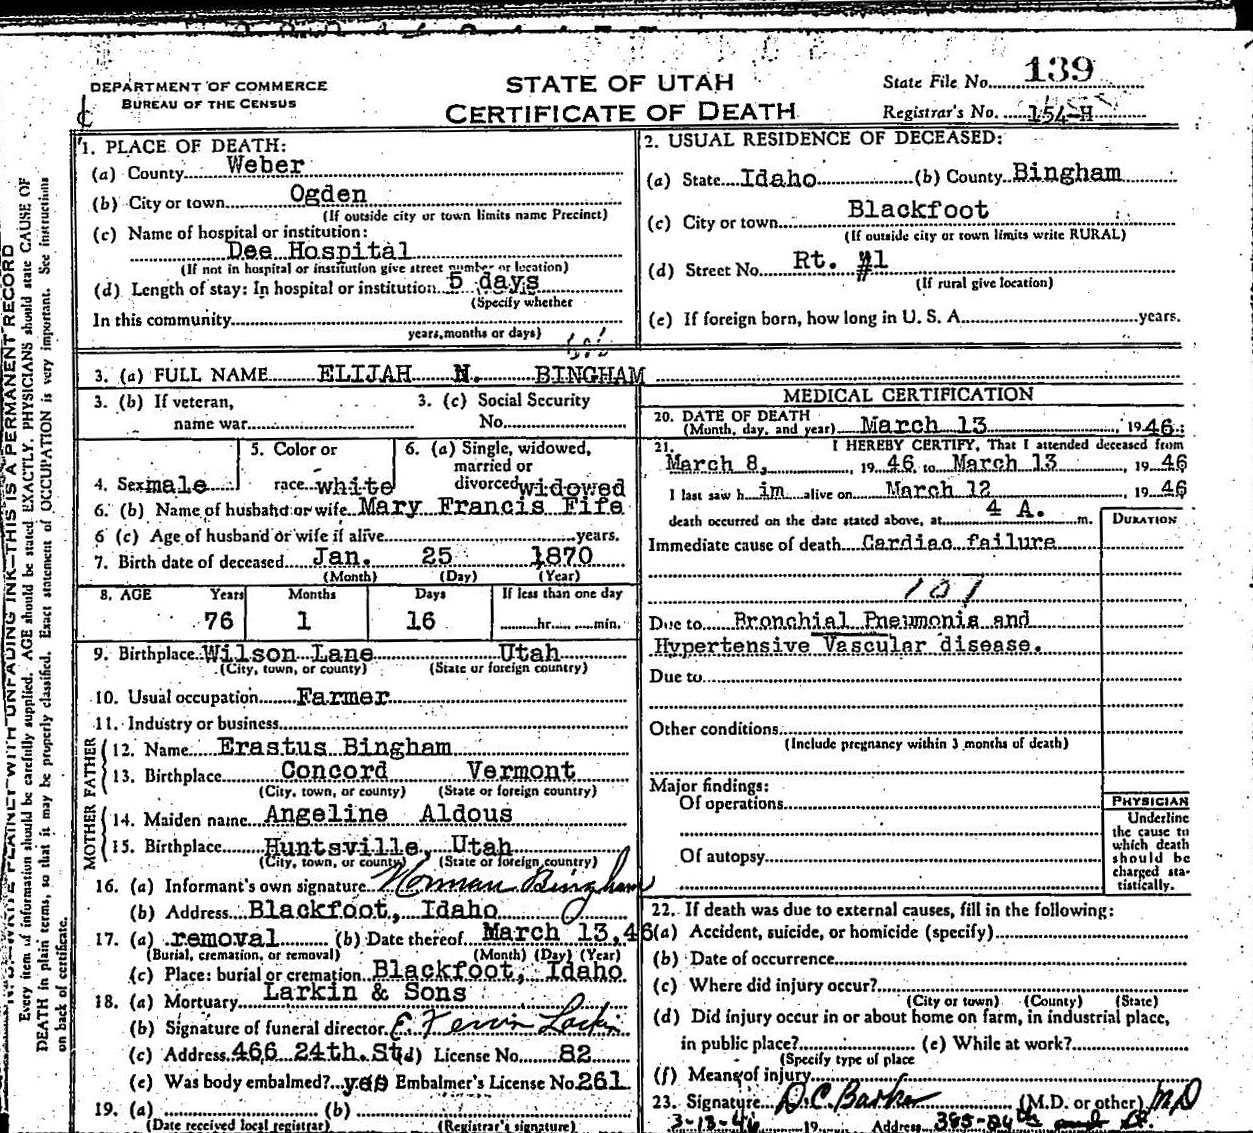 DEPARTMENT OF COMMERCE
BUREAU OF THE CENSUS
STATE OF UTAH
CERTIFICATE OF DEATH
State File No. 139
Registrar's No. 154-H
1. PLACE OF DEATH:
(a) County Weber
(b) City or town Ogden
(If outside city or town limits name Precinct)
(c) Name of hospital or institution:
Dee Hospital
(If not in hospital or institution give street number or location)
(d) Length of stay: In hospital or institution 5 days
(Specify whether
In this community
years, months or days)
2. USUAL RESIDENCE OF DECEASED:
(a) State Idaho (b) County Bingham
(c) City or town Blackfoot
(If outside city or town limits write RURAL)
(d) Street No. Rt. #1
(If rural give location)
(e) If foreign born, how long in U. S. A. years.
3. (a) FULL NAME ELIJAH N. BINGHAM
3. (b) If veteran, name war
3. (c) Social Security No.
4. Sex male
5. Color or race white
6. (a) Single, widowed, married or divorced widowed
6. (b) Name of husband or wife Mary Francis Fife
6 (c) Age of husband or wife if alive years.
7. Birth date of deceased Jan. 25 1870
(Month) (Day) (Year)
8. AGE Years Months Days If less than one day
76 1 16 hr. min.
9. Birthplace Wilson Lane Utah
(City, town, or county) (State or foreign country)
10. Usual occupation Farmer
11. Industry or business
FATHER
12. Name Erastus Bingham
13. Birthplace Concord Vermont
(City, town, or county) (State or foreign country)
MOTHER
14. Maiden name Angeline Aldous
15. Birthplace Huntsville, Utah
(City, town, or county) (State or foreign country)
16. (a) Informant's own signature Norman Bingham
(b) Address Blackfoot, Idaho
17. (a) removal (b) Date thereof March 13, 46
(Burial, cremation, or removal) (Month) (Day) (Year)
(c) Place: burial or cremation Blackfoot, Idaho
18. (a) Mortuary Larkin & Sons
(b) Signature of funeral director Larkin
(c) Address 466 24th. St. (d) License No. 82
(e) Was body embalmed? yes Embalmer's License No. 261
19. (a) (b)
(Date received local registrar) (Registrar's signature)
MEDICAL CERTIFICATION
20. DATE OF DEATH
(Month, day, and year) March 13, 1946
21. I HEREBY CERTIFY, That I attended deceased from
March 8, 1946 to March 13, 1946
I last saw him alive on March 12, 1946
death occurred on the date stated above, at 4 A. m.
DURATION
Immediate cause of death Cardiac failure
107
Due to Bronchial Pneumonia and
Hypertensive Vascular disease.
Due to
Other conditions
(Include pregnancy within 3 months of death)
Major findings:
Of operations
Of autopsy
PHYSICIAN
Underline
the cause to
which death
should be
charged sta-
tistically.
22. If death was due to external causes, fill in the following:
(a) Accident, suicide, or homicide (specify)
(b) Date of occurrence
(c) Where did injury occur?
(City or town) (County) (State)
(d) Did injury occur in or about home on farm, in industrial place,
in public place? (e) While at work?
(Specify type of place
(f) Means of injury
23. Signature D.C. Barker (M.D. or other) MD
3-13-46 19 Address 385-24th St.
Every item of information should be carefully supplied. AGE should be stated EXACTLY. PHYSICIANS should state CAUSE OF
DEATH in plain terms, so that it may be properly classified. Exact statement of OCCUPATION is very important. See instructions
on back of certificate.
WRITE PLAINLY WITH UNFADING INK—THIS IS A PERMANENT RECORD